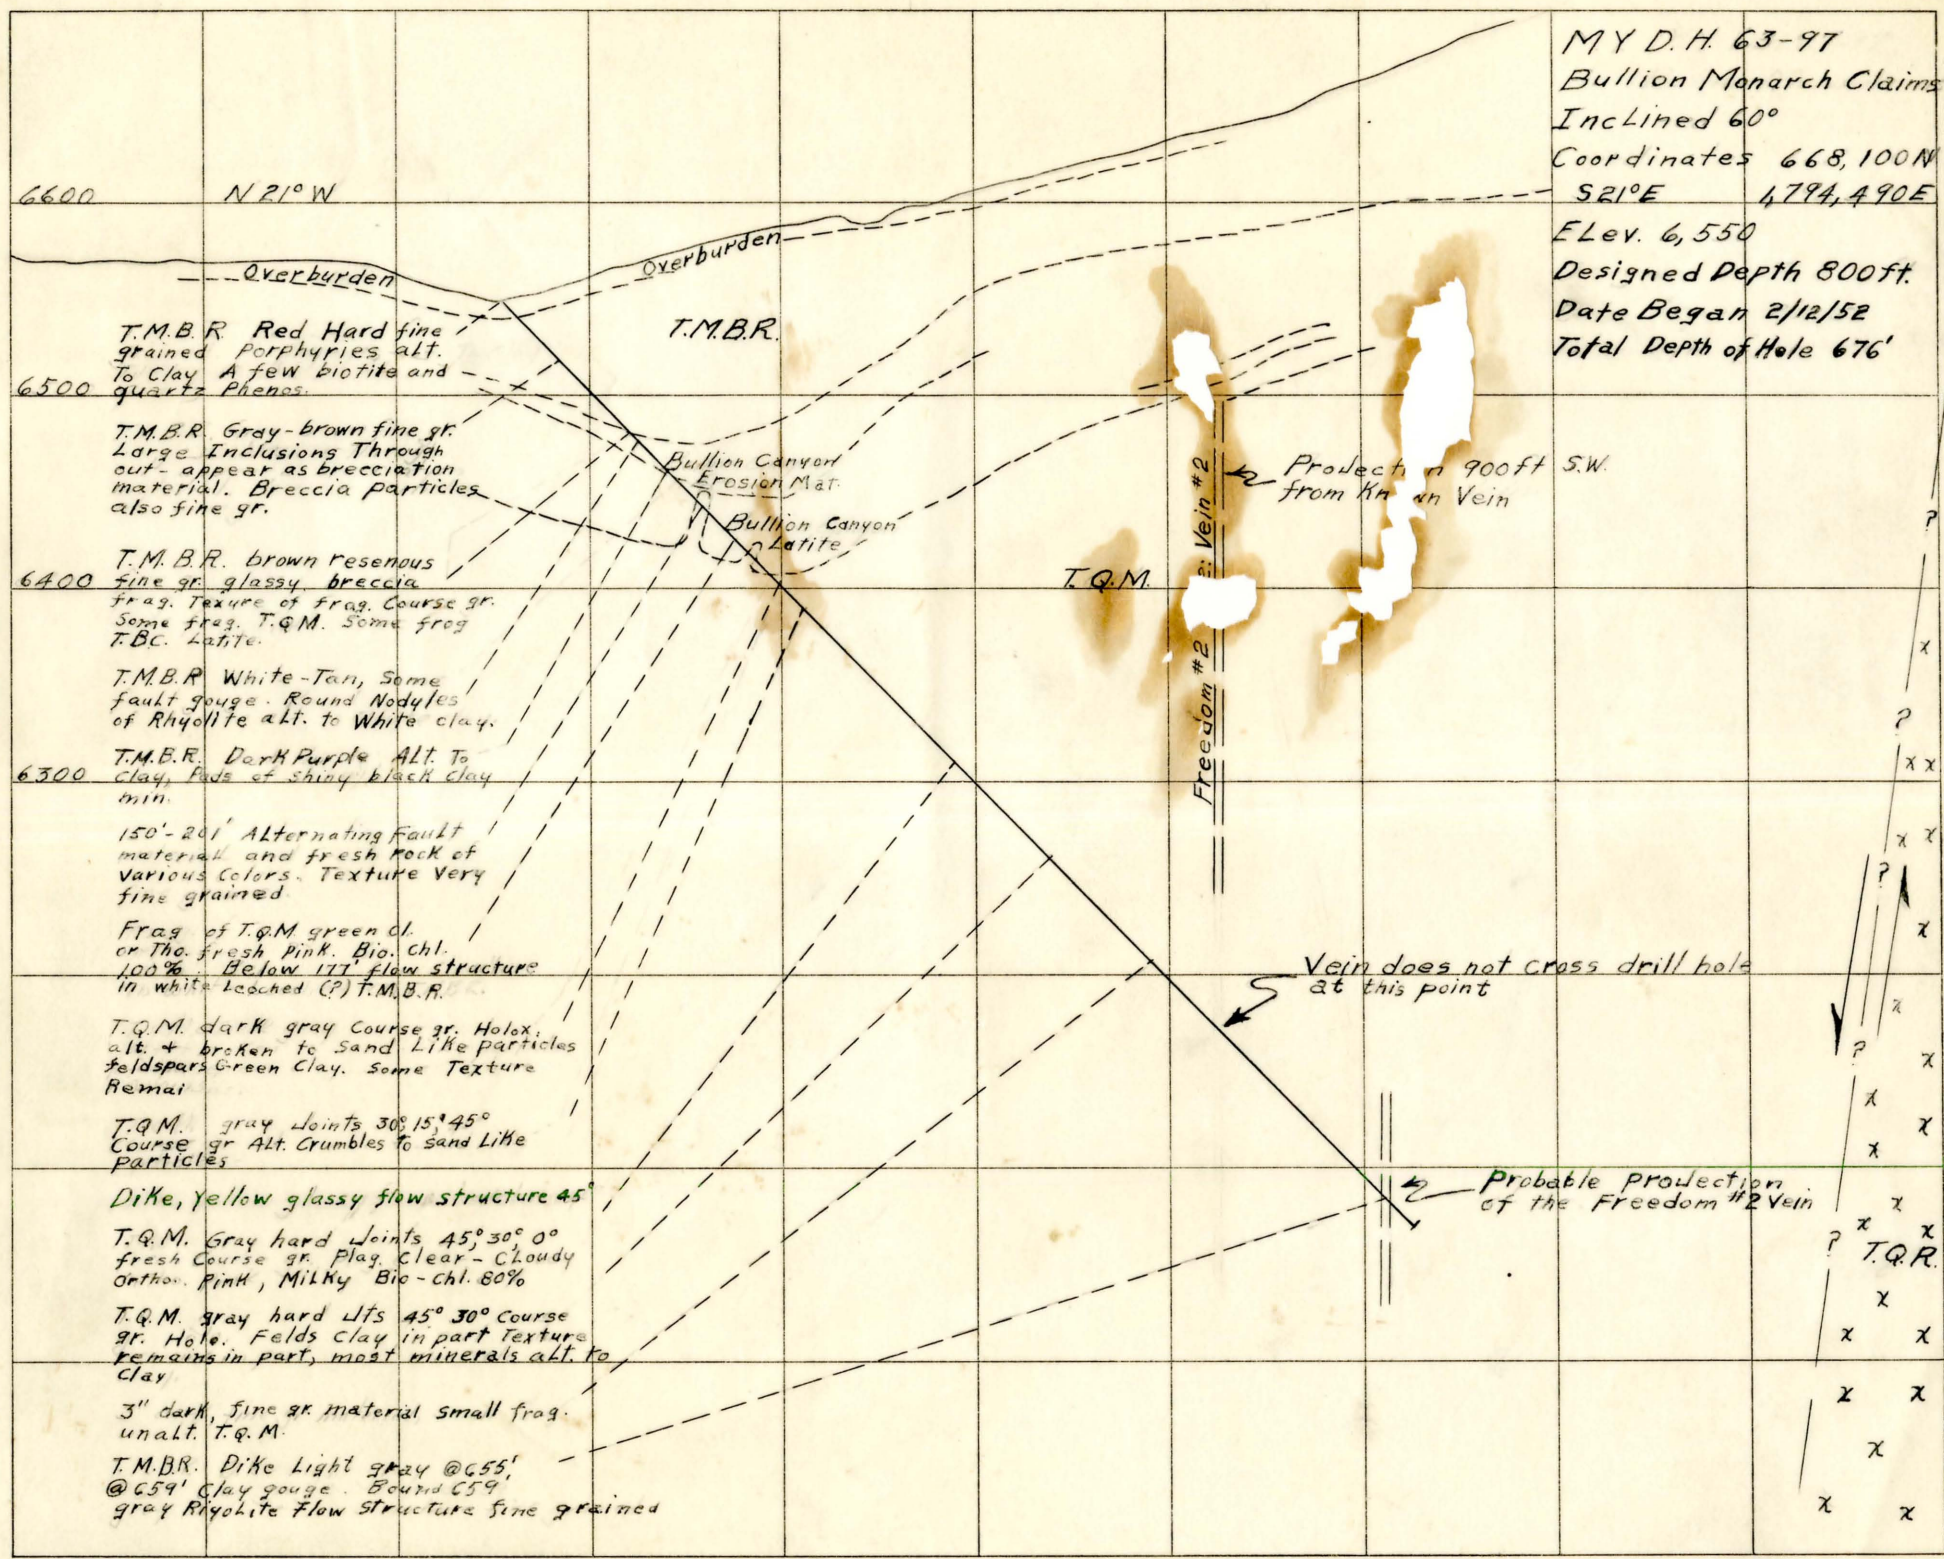 MY D.H. 63-97
Bullion Monarch Claims
Inclined 60°
Coordinates 668,100N
S21°E 1,794,490E
Elev. 6,550
Designed Depth 800ft.
Date Began 2/12/52
Total Depth of Hole 676'
6600
N 21° W
Overburden
Overburden
T.M.B.R.
T.M.B.R Red Hard fine
grained Porphyries alt.
To Clay A few biotite and
quartz Phenos.
6500
T.M.B.R. Gray-brown fine gr.
Large Inclusions Through
out - appear as brecciation
material. Breccia particles
also fine gr.
Bullion Canyon
Erosion Mat.
Bullion Canyon
Latite
T.M.B.R. brown resenous
fine gr. glassy breccia
frag. Texure of frag. Course gr.
Some frag. T.Q.M. Some frog
T.BC. Latite.
6400
T.Q.M.
Vein #2
Freedom #2
900ft S.W.
from Vein
T.M.B.R White-Tan, Some
fault gouge. Round Nodyles
of Rhyolite alt. to White clay.
T.M.B.R. Dark Purple Alt. To
Clay, Pods of shiny black clay
min.
6300
150'-201' Alternating Fault
material and fresh rock of
Various Colors. Texture Very
fine grained
Frag of T.Q.M. green cl.
or Tho. fresh pink. Bio. Chl.
100%. Below 177' flow structure
in white Leached (?) T.M.B.R.
T.Q.M. dark gray Course gr. Holox.
alt. + broken to Sand Like particles
feldspars Green Clay. Some Texture
Remai
T.Q.M. gray Joints 30°, 15°, 45°
Course gr Alt. Crumbles to Sand Like
particles
Dike, Yellow glassy flow structure 45°
T.Q.M. Gray hard Joints 45°, 30°, 0°
fresh Course gr. Plag. Clear - Cloudy
Ortho. Pink, Milky Bio-Chl. 80%
T.Q.M. gray hard Jts 45° 30° Course
gr. Holo. Felds Clay in part Texture
remains in part, most minerals alt. to
Clay
3" dark, fine gr. material small frag.
unalt. T.Q.M.
T.M.B.R. Dike Light gray @655',
@659' Clay gouge. Bound 659
gray Riyolite Flow Structure fine grained
Vein does not cross drill hole
at this point
Probable Projection
of the Freedom #2 Vein
?
?
?
?
?
T.Q.R.